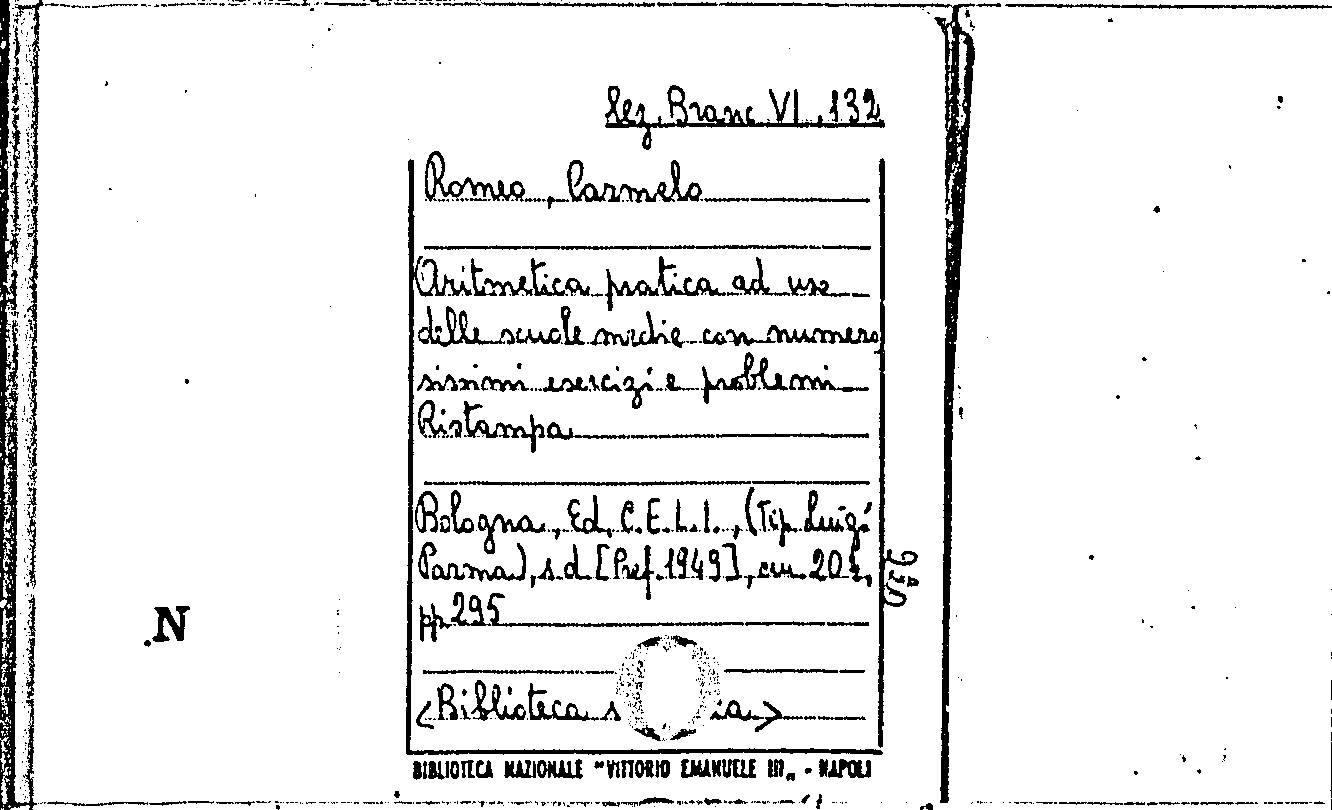 Sez. Branc VI . 132
Romeo, Carmelo
Aritmetica pratica ad uso
delle scuole medie con numero
sissimi esercizi e problemi
Ristampa
Bologna, Ed. C.E.L.I., (Tip. Luigi
Parma), s.d. [Pref. 1949], cm 20½,
pp. 295
N
<Biblioteca s ia>
BIBLIOTECA NAZIONALE "VITTORIO EMANUELE III„ - NAPOLI